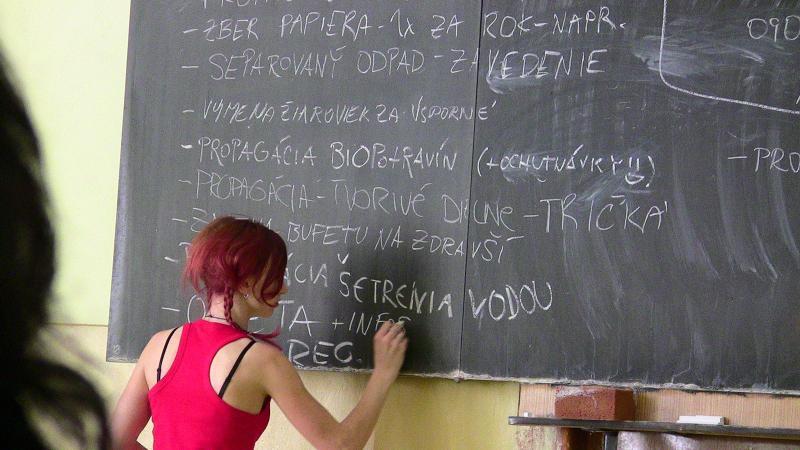 - ZBER PAPIERA - 1x ZA ROK - NAPR.
- SEPAROVANÝ ODPAD - ZAVEDENIE
- VÝMENA ŽIAROVIEK ZA VSPORNÉ
- PROPAGÁCIA BIOPOTRAVÍN (+OCHUTNÁVKY!!)
- PROPAGÁCIA - TVORIVÉ DIELNE - TRIČKÁ
BUFETU NA ZDRAVŠÍ
ŠETRENIA VODOU
+ INFO
REC.
090
- PRO